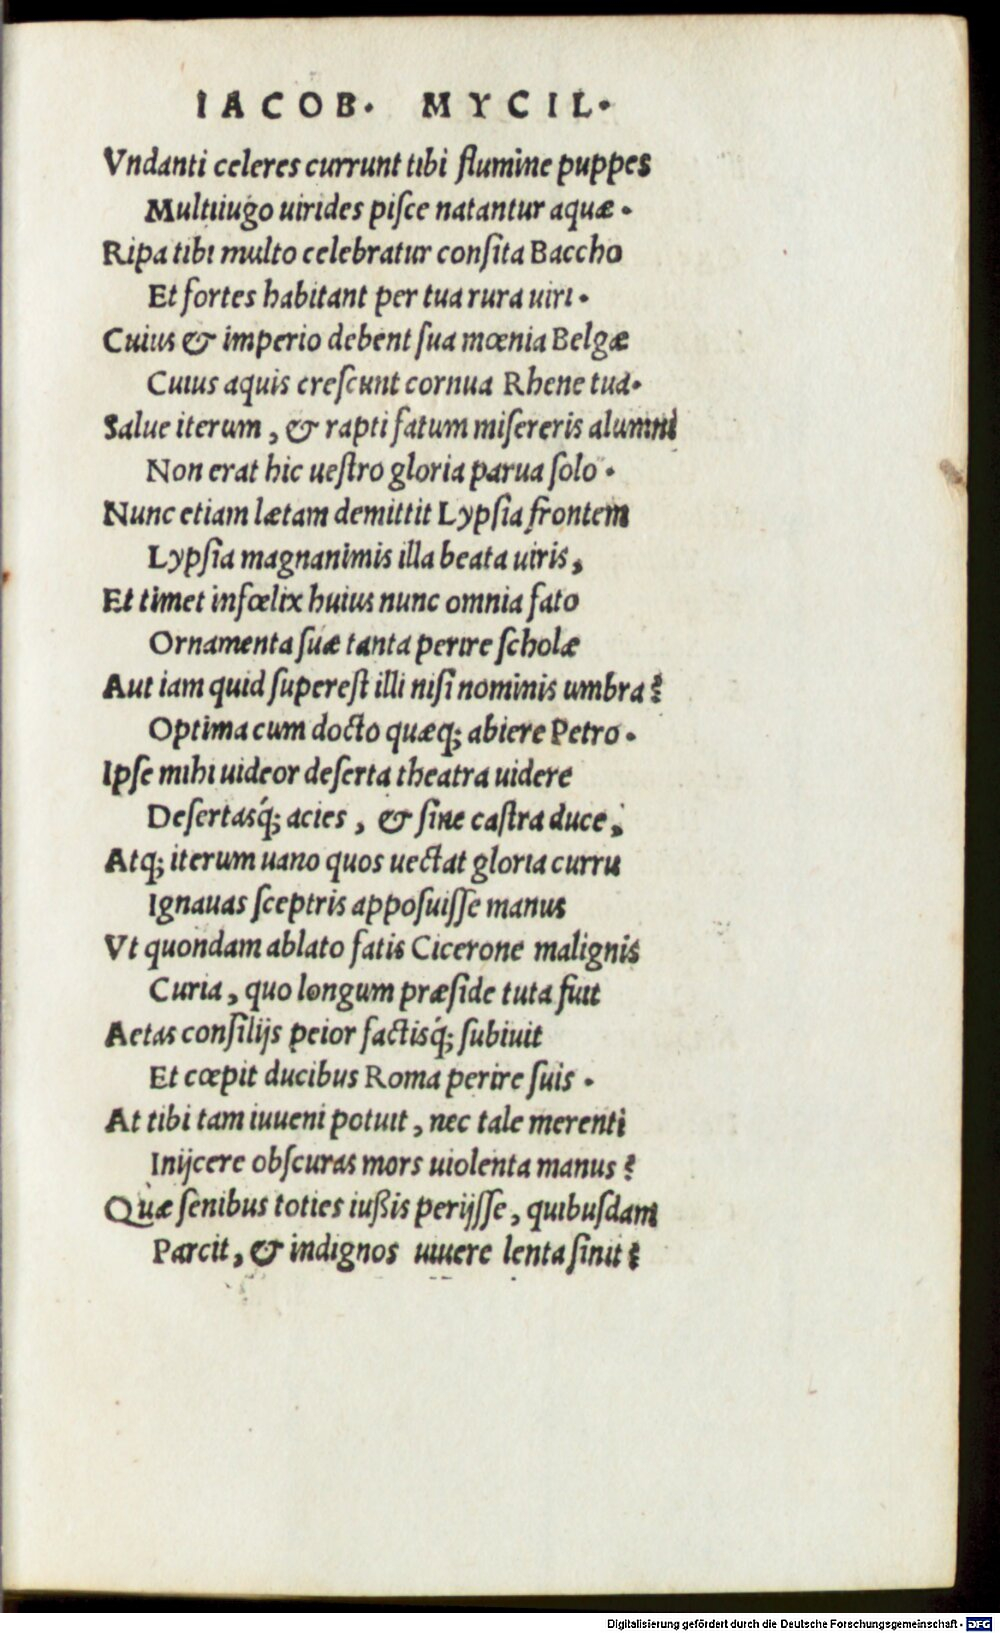 IACOB. MYCIL.
Vndanti celeres currunt tibi flumine puppes
Multiiugo uirides pisce natantur aquæ.
Ripa tibi multo celebratur consita Baccho
Et fortes habitant per tua rura uiri.
Cuius & imperio debent sua mœnia Belgæ
Cuius aquis crescunt cornua Rhene tua.
Salue iterum, & rapti fatum misereris alumni
Non erat hic uestro gloria parua solo.
Nunc etiam lætam demittit Lypsia frontem
Lypsia magnanimis illa beata uiris,
Et timet infœlix huius nunc omnia fato
Ornamenta suæ tanta perire scholæ
Aut iam quid superest illi nisi nominis umbra?
Optima cum docto quæq; abiere Petro.
Ipse mihi uideor deserta theatra uidere
Desertasq́; acies, & sine castra duce,
Atq; iterum uano quos uectat gloria curru
Ignauas sceptris apposuisse manus
Vt quondam ablato fatis Cicerone malignis
Curia, quo longum præside tuta fuit
Aetas consilijs peior factisq́; subiuit
Et cœpit ducibus Roma perire suis.
At tibi tam iuueni potuit, nec tale merenti
Inijcere obscuras mors uiolenta manus?
Quæ senibus toties iußis perijsse, quibusdam
Parcit, & indignos uiuere lenta sinit?
Digitalisierung gefördert durch die Deutsche Forschungsgemeinschaft - DFG